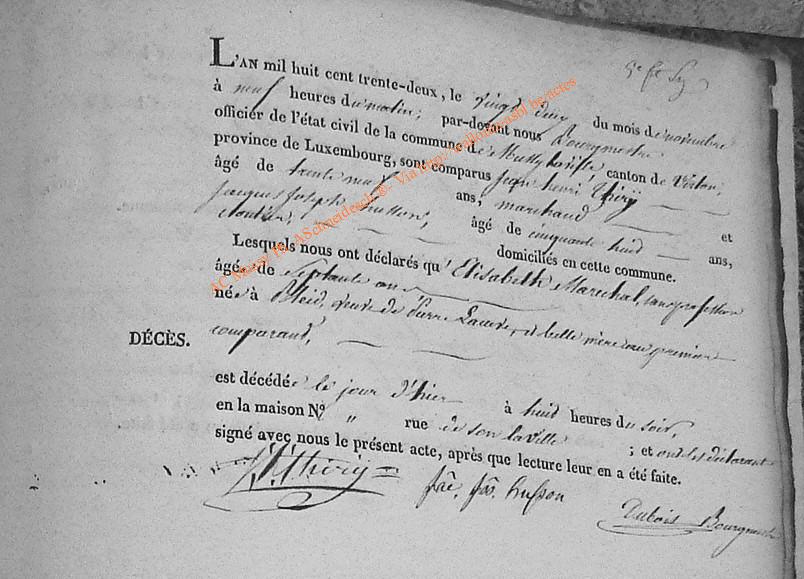 L'AN mil huit cent trente-deux, le vingt deux du mois de novembre
à neuf heures du matin; par-devant nous Bourgmestre
officier de l'état civil de la commune de Mussy canton de Virton,
province de Luxembourg, sont comparus Jean henri Thiry
âgé de trente neuf ans, marchand et
jacques Joseph husson, âgé de cinquante huit ans,
cloutier, domiciliés en cette commune.
Lesquels nous ont déclarés qu'Elisabeth Marechal, sans profession
âgée de Septante ans
née à Bleid, veuve de pierre et belle mère au premier
comparant,
DÉCÈS.
est décédée le jour d'hier à huit heures du soir,
en la maison Nº " rue de son la ville ; et ont les déclarant
signé avec nous le présent acte, après que lecture leur en a été faite.
Thiry jos. husson
Dubois Bourgmestre